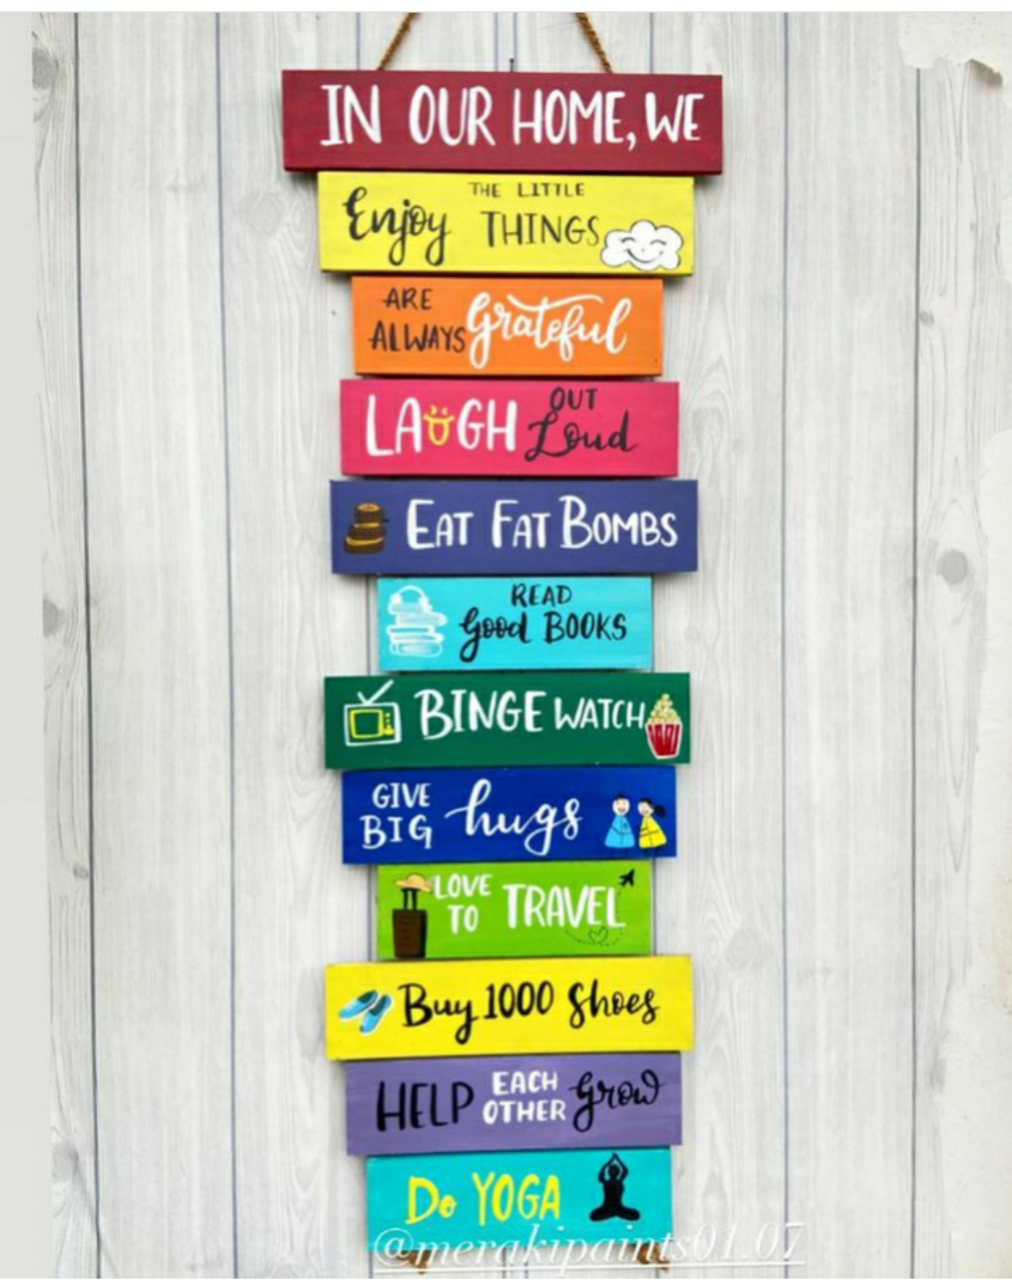 IN OUR HOME, WE
THE LITTLE
Enjoy THINGS
ARE
ALWAYS Grateful
LAUGH OUT
Loud
EAT FAT BOMBS
READ
Good BOOKS
BINGE WATCH
GIVE
BIG hugs
LOVE
TO TRAVEL
Buy 1000 Shoes
HELP EACH
OTHER Grow
Do YOGA
@merakipaints01.07